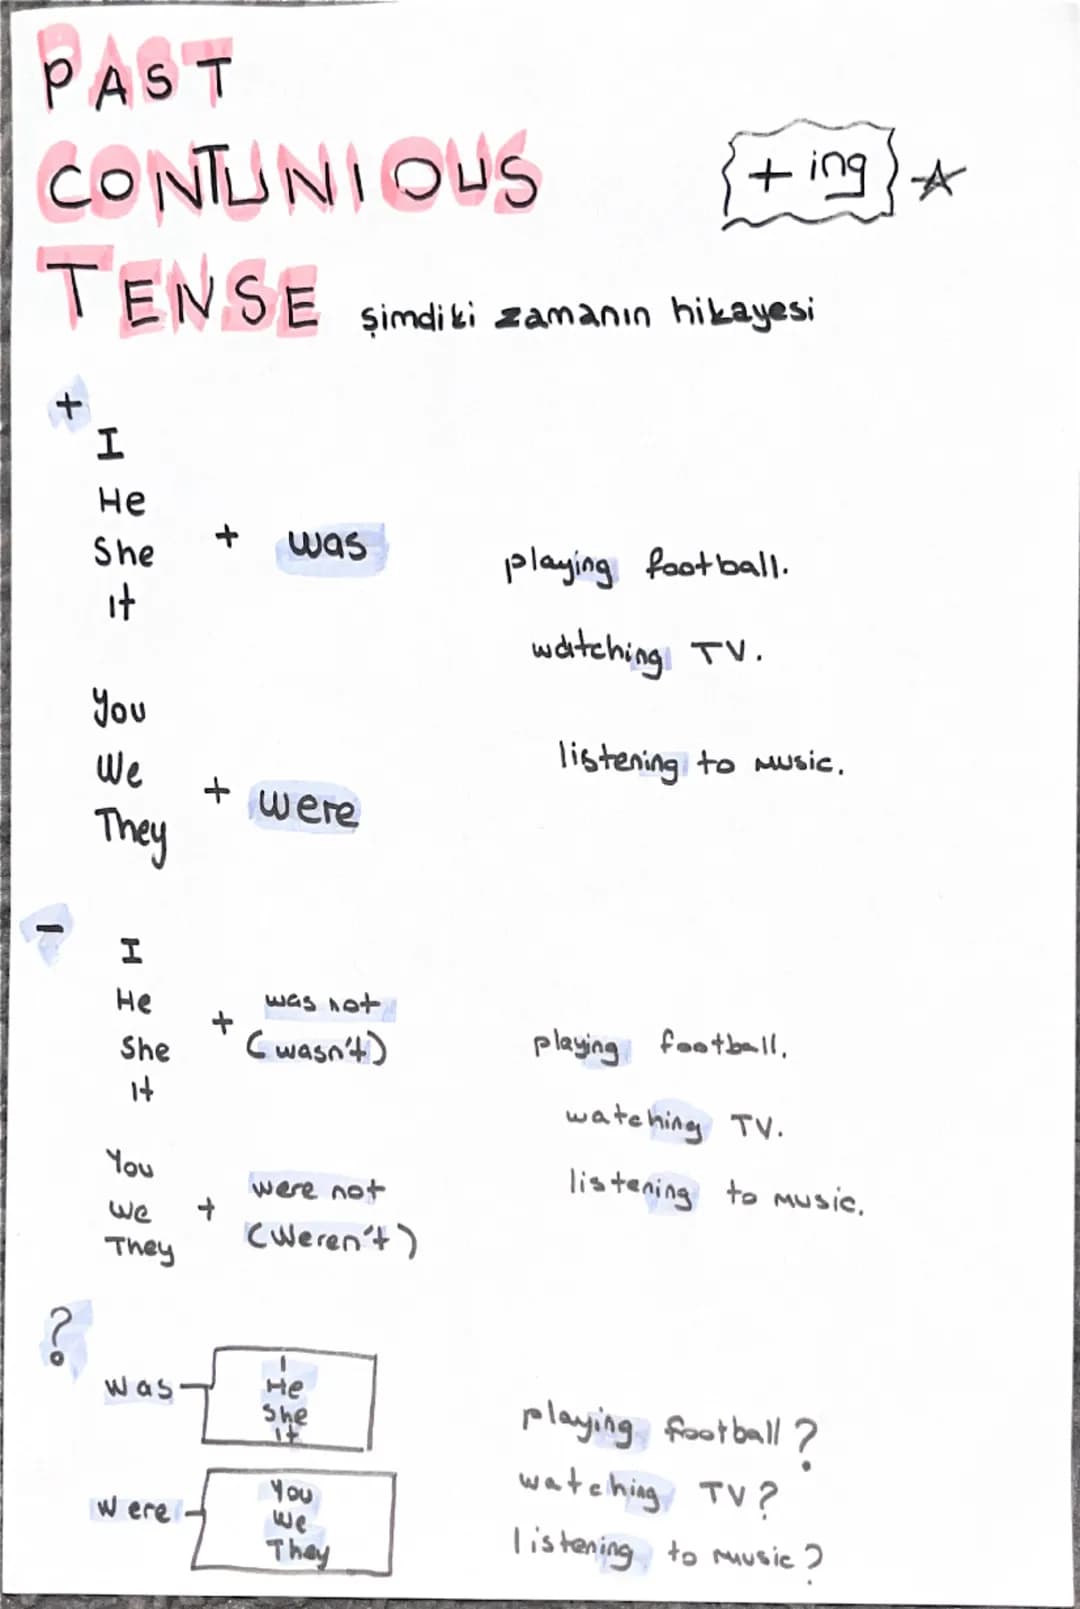 PAST
CONTUNIOUS
+ ing
TENSE şimdiki zamanın hikayesi
+
I
He
She
it
+ was
playing football.
watching TV.
listening to music.
You
We
They
+ were
-
I
He
She
it
+ was not
(wasn't)
playing football.
watching TV.
listening to music.
You
we
They
+ were not
(weren't)
?
was
I
He
She
it
were
You
we
They
playing football?
watching TV?
listening to music?